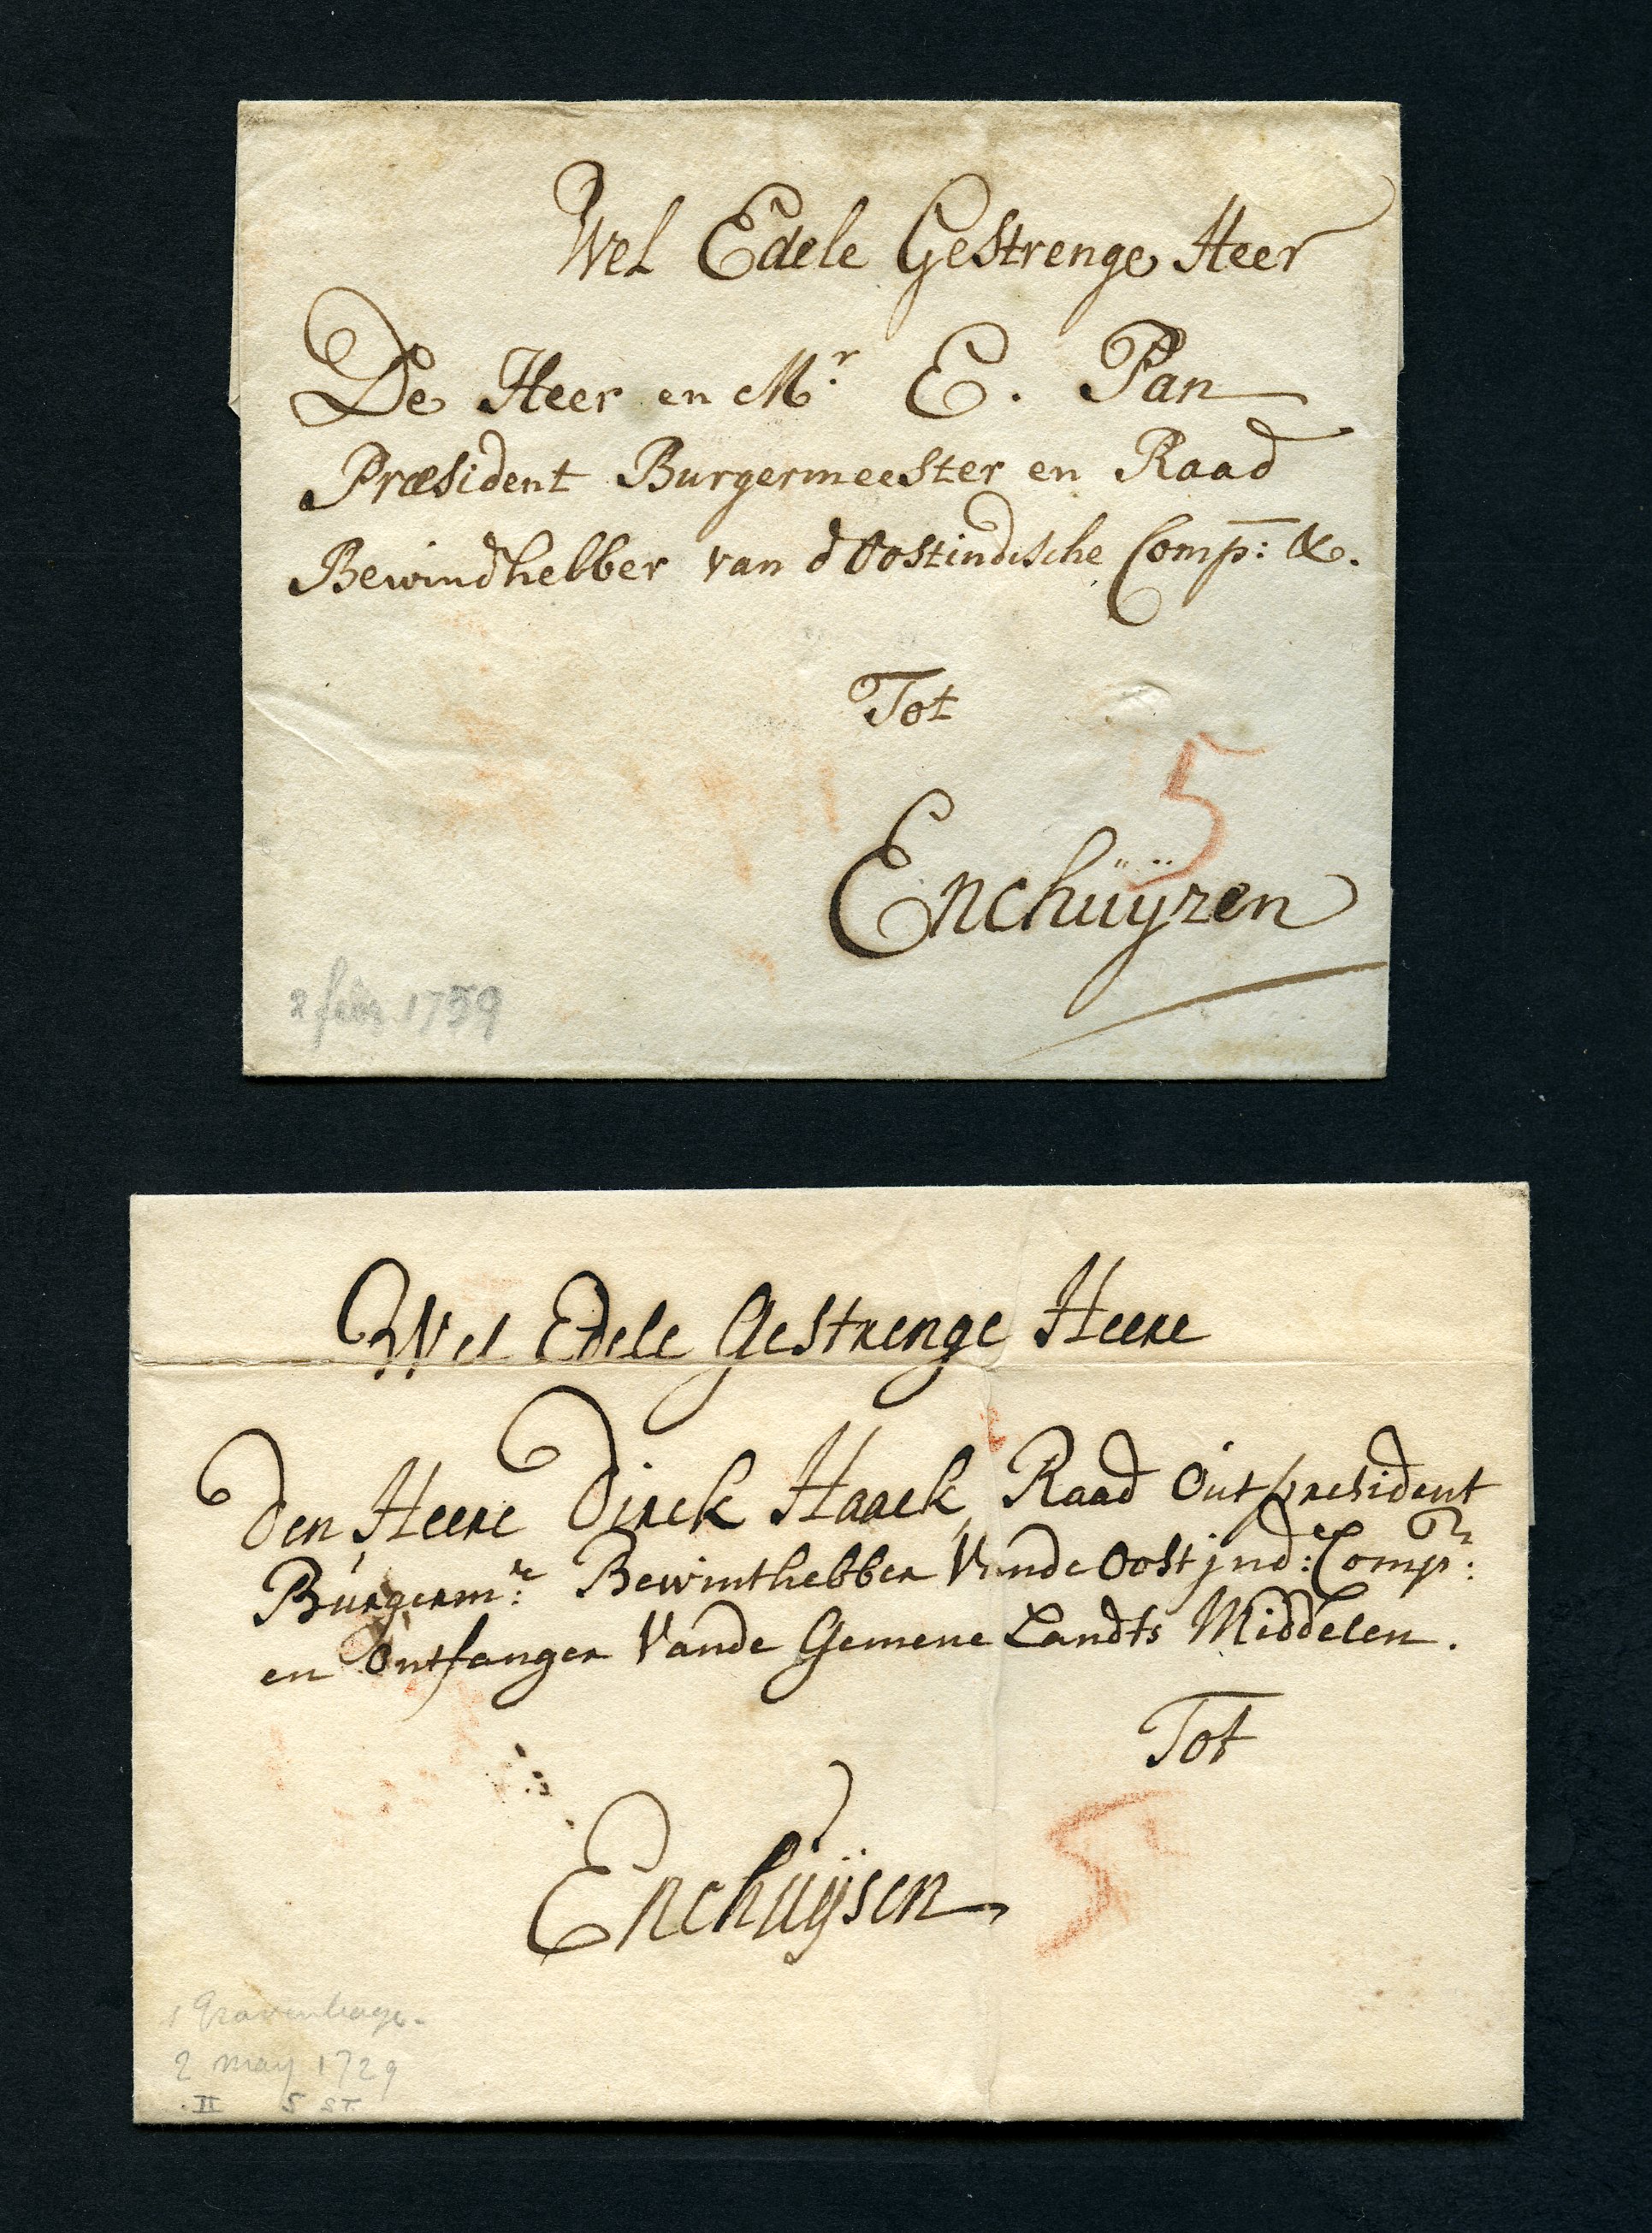 Wel Edele Gestrenge Heer
De Heer en Mr. E. Pan
Præsident Burgermeester en Raad
Bewindhebber van d Oostindische Comp: &c.
Tot
5
Enchüÿzen
2 febr. 1759
Wel Edele Gestrenge Heere
Den Heere Dirck Haack, Raad Out president
Burgerm.re Bewinthebber Vande Oost jnd: Comp:
en Ontfanger Vande Gemene Landts Middelen.
Tot
5
Enchuÿsen
s Gravenhage.
2 may 1729
II 5 ST.